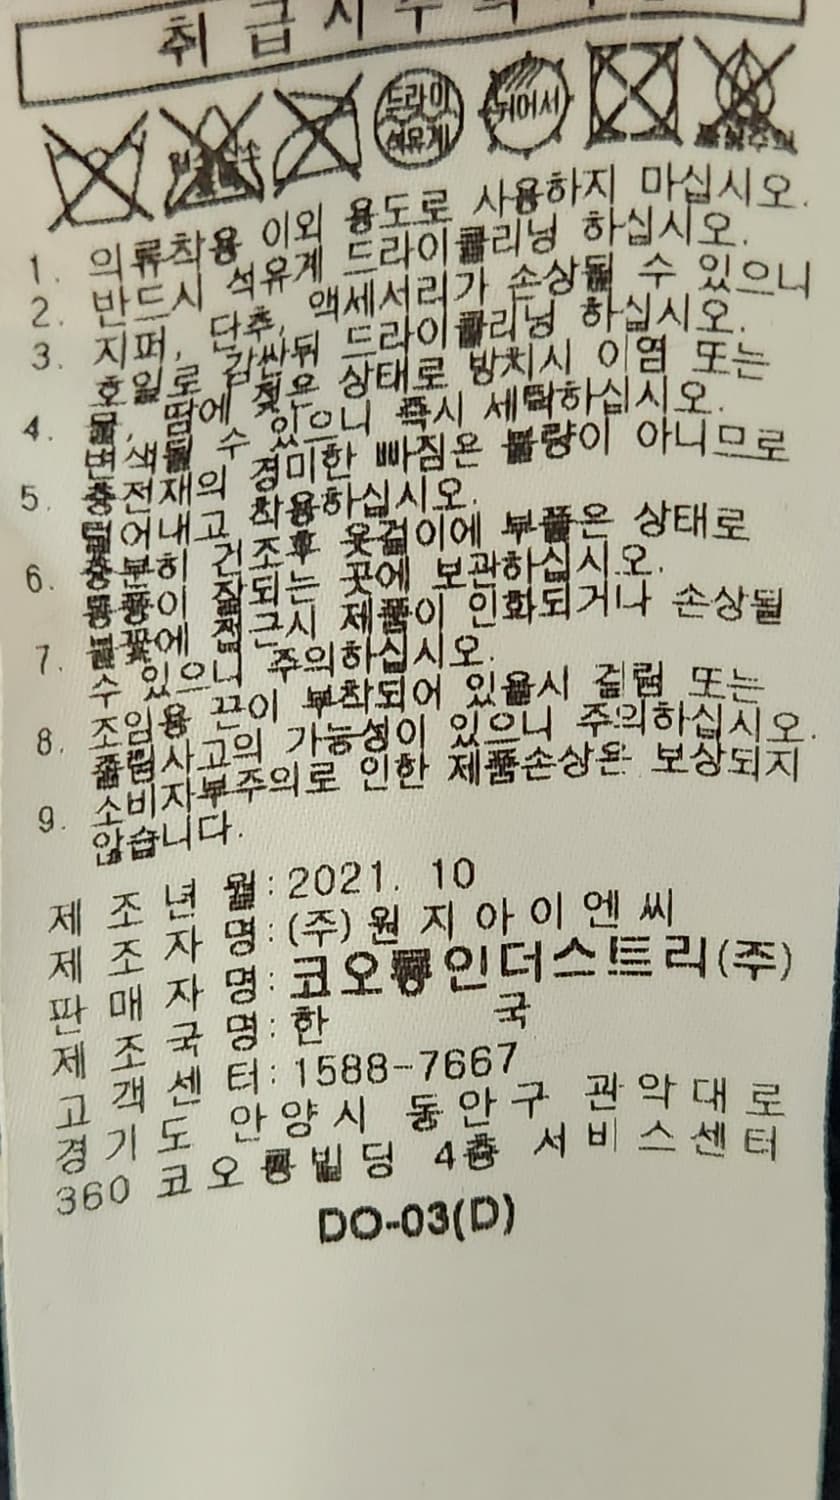 취급시주의사항
드라이
석유계
뉘어서
1. 의류착용 이외 용도로 사용하지 마십시오.
2. 반드시 석유계 드라이클리닝 하십시오.
3. 지퍼, 단추, 액세서리가 손상될 수 있으니
호일로 감싼뒤 드라이클리닝 하십시오.
4. 물, 땀에 젖은 상태로 방치시 이염 또는
변색될 수 있으니 즉시 세탁하십시오.
5. 충전재의 경미한 빠짐은 불량이 아니므로
털어내고 착용하십시오.
6. 충분히 건조후 옷걸이에 부풀은 상태로
통풍이 잘되는 곳에 보관하십시오.
7. 불꽃에 접근시 제품이 인화되거나 손상될
수 있으니 주의하십시오.
8. 조임용 끈이 부착되어 있을시 걸림 또는
졸림사고의 가능성이 있으니 주의하십시오.
9. 소비자부주의로 인한 제품손상은 보상되지
않습니다.
제조년월: 2021. 10
제조자명: (주)원지아이엔씨
판매자명: 코오롱인더스트리(주)
제조국명: 한국
고객센터: 1588-7667
경기도 안양시 동안구 관악대로
360 코오롱빌딩 4층 서비스센터
DO-03(D)